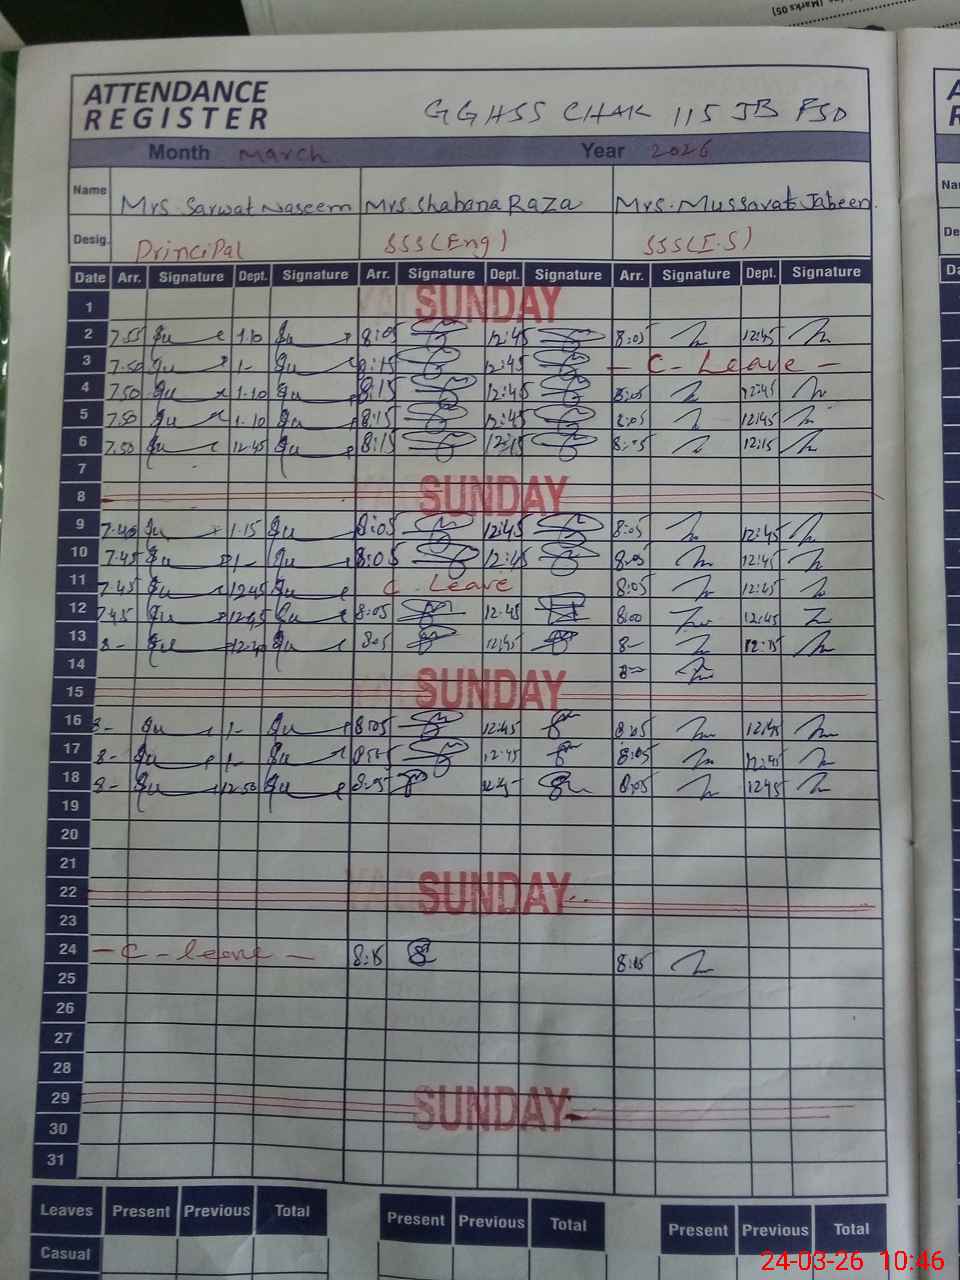 (Marks 05)
ATTENDANCE
REGISTER
GGHSS CHAK 115 JB FSD
Month March Year 2026
Name Mrs. Sarwat Naseem Mrs. Shabana Raza Mrs. Mussarat Jabeen.
Desig. Principal SSS(Eng) SSS(I.S)
Date Arr. Signature Dept. Signature Arr. Signature Dept. Signature Arr. Signature Dept. Signature
1 SUNDAY
2 7.55 1.10 8:05 12:45 8:05 12:45
3 7.50 1- 8:15 12:45 - C - Leave -
4 7.50 1.10 8:15 12:45 8:05 12:45
5 7.50 1.10 8:15 12:45 8:05 12:45
6 7.50 12.45 8:15 12:15 8:05 12:15
7
8 SUNDAY
9 7.40 1.15 8:05 12:45 8:05 12:45
10 7.45 1- 8:05 12:45 8:05 12:45
11 7.45 12.45 C Leave 8:05 12:45
12 7.45 12.45 8:05 12:45 8:00 12:45
13 8- 8:05 12:45 8-
14
15 SUNDAY
16 8- 1- 8:05 12:45 8:05 12:45
17 8- 1- 8:05 12:45 8:05 12:45
18 8- 12.50 8:05 12:45 8:05 12:45
19
20
21
22 SUNDAY
23
24 - C - leave - 8:15 8:15
25
26
27
28
29 SUNDAY
30
31
Leaves Present Previous Total Present Previous Total Present Previous Total
Casual
24-03-26 10:46